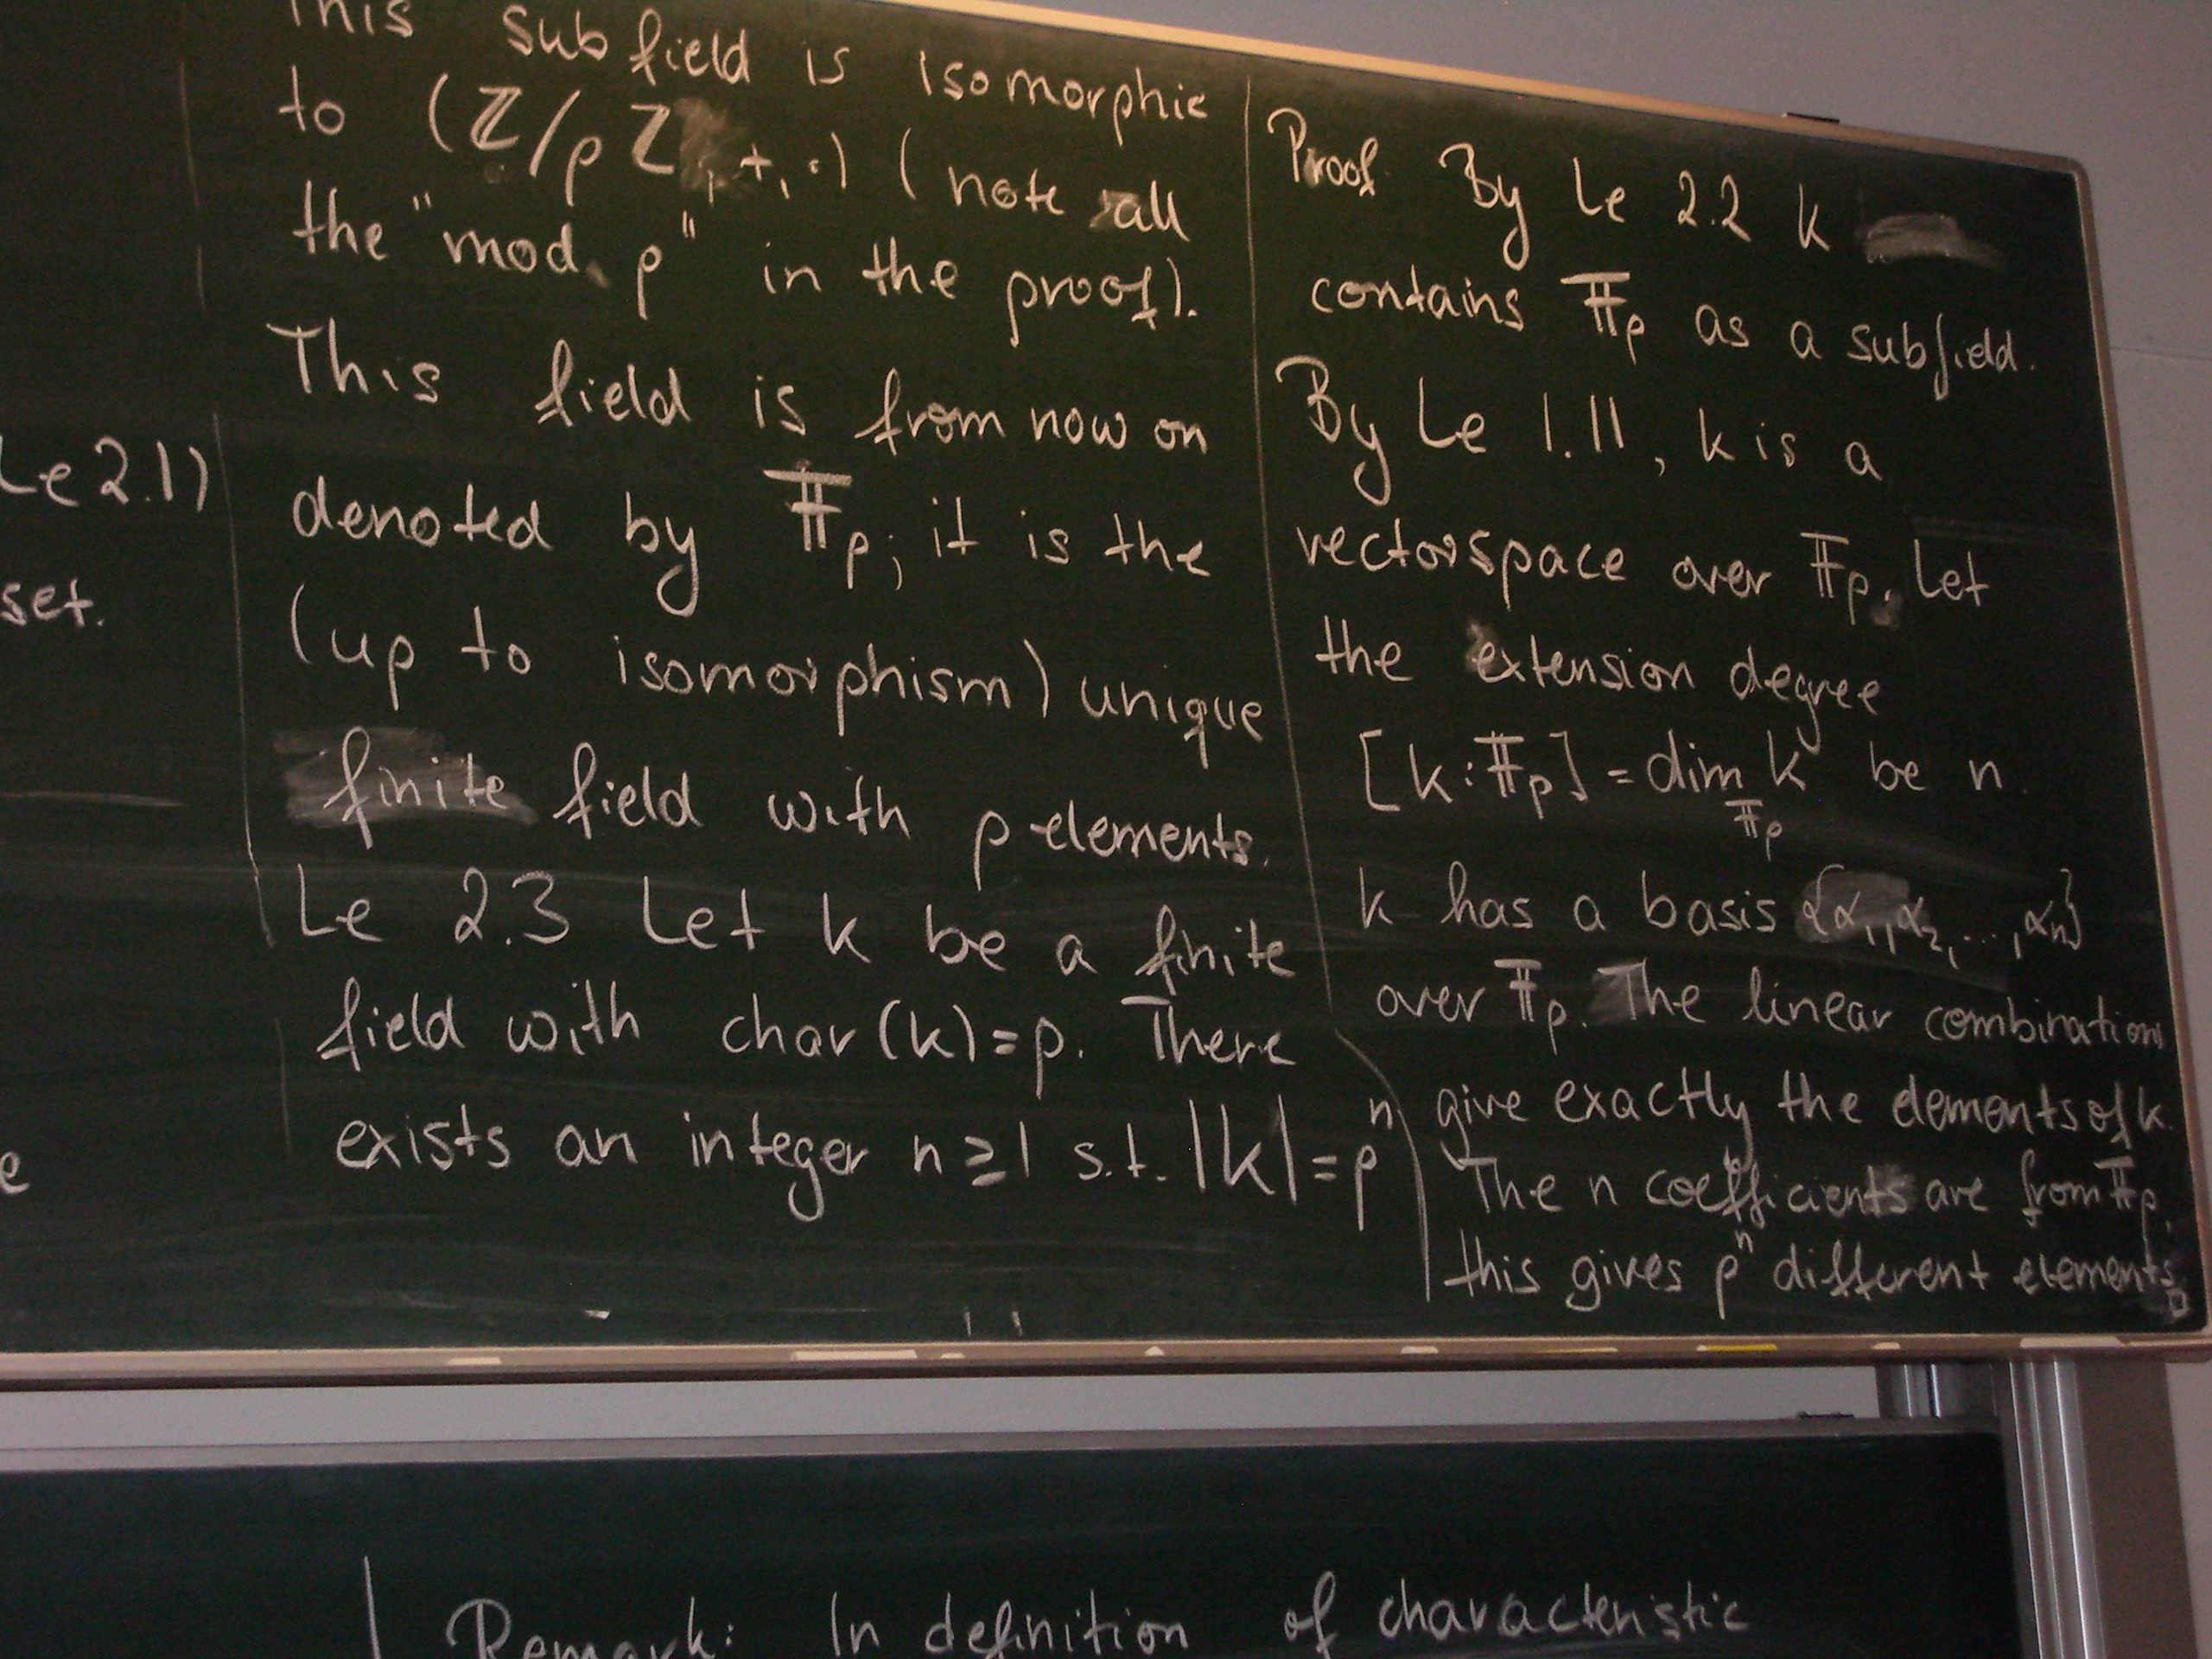 This subfield is isomorphic
to (ℤ/pℤ, +, ·) (note all
the "mod p" in the proof).
This field is from now on
denoted by 𝔽p; it is the
(up to isomorphism) unique
finite field with p elements.
Le 2.3 Let k be a finite
field with char(k)=p. There
exists an integer n≥1 s.t. |k|=pⁿ
Le 2.1)
set.
e
Proof. By Le 2.2 k
contains 𝔽p as a subfield.
By Le 1.11, k is a
vectorspace over 𝔽p. Let
the extension degree
[k:𝔽p] = dim k be n
𝔽p
k has a basis {α₁,α₂,...,αn}
over 𝔽p. The linear combinations
give exactly the elements of k.
The n coefficients are from 𝔽p,
this gives pⁿ different elements □
Remark: In definition of characteristic